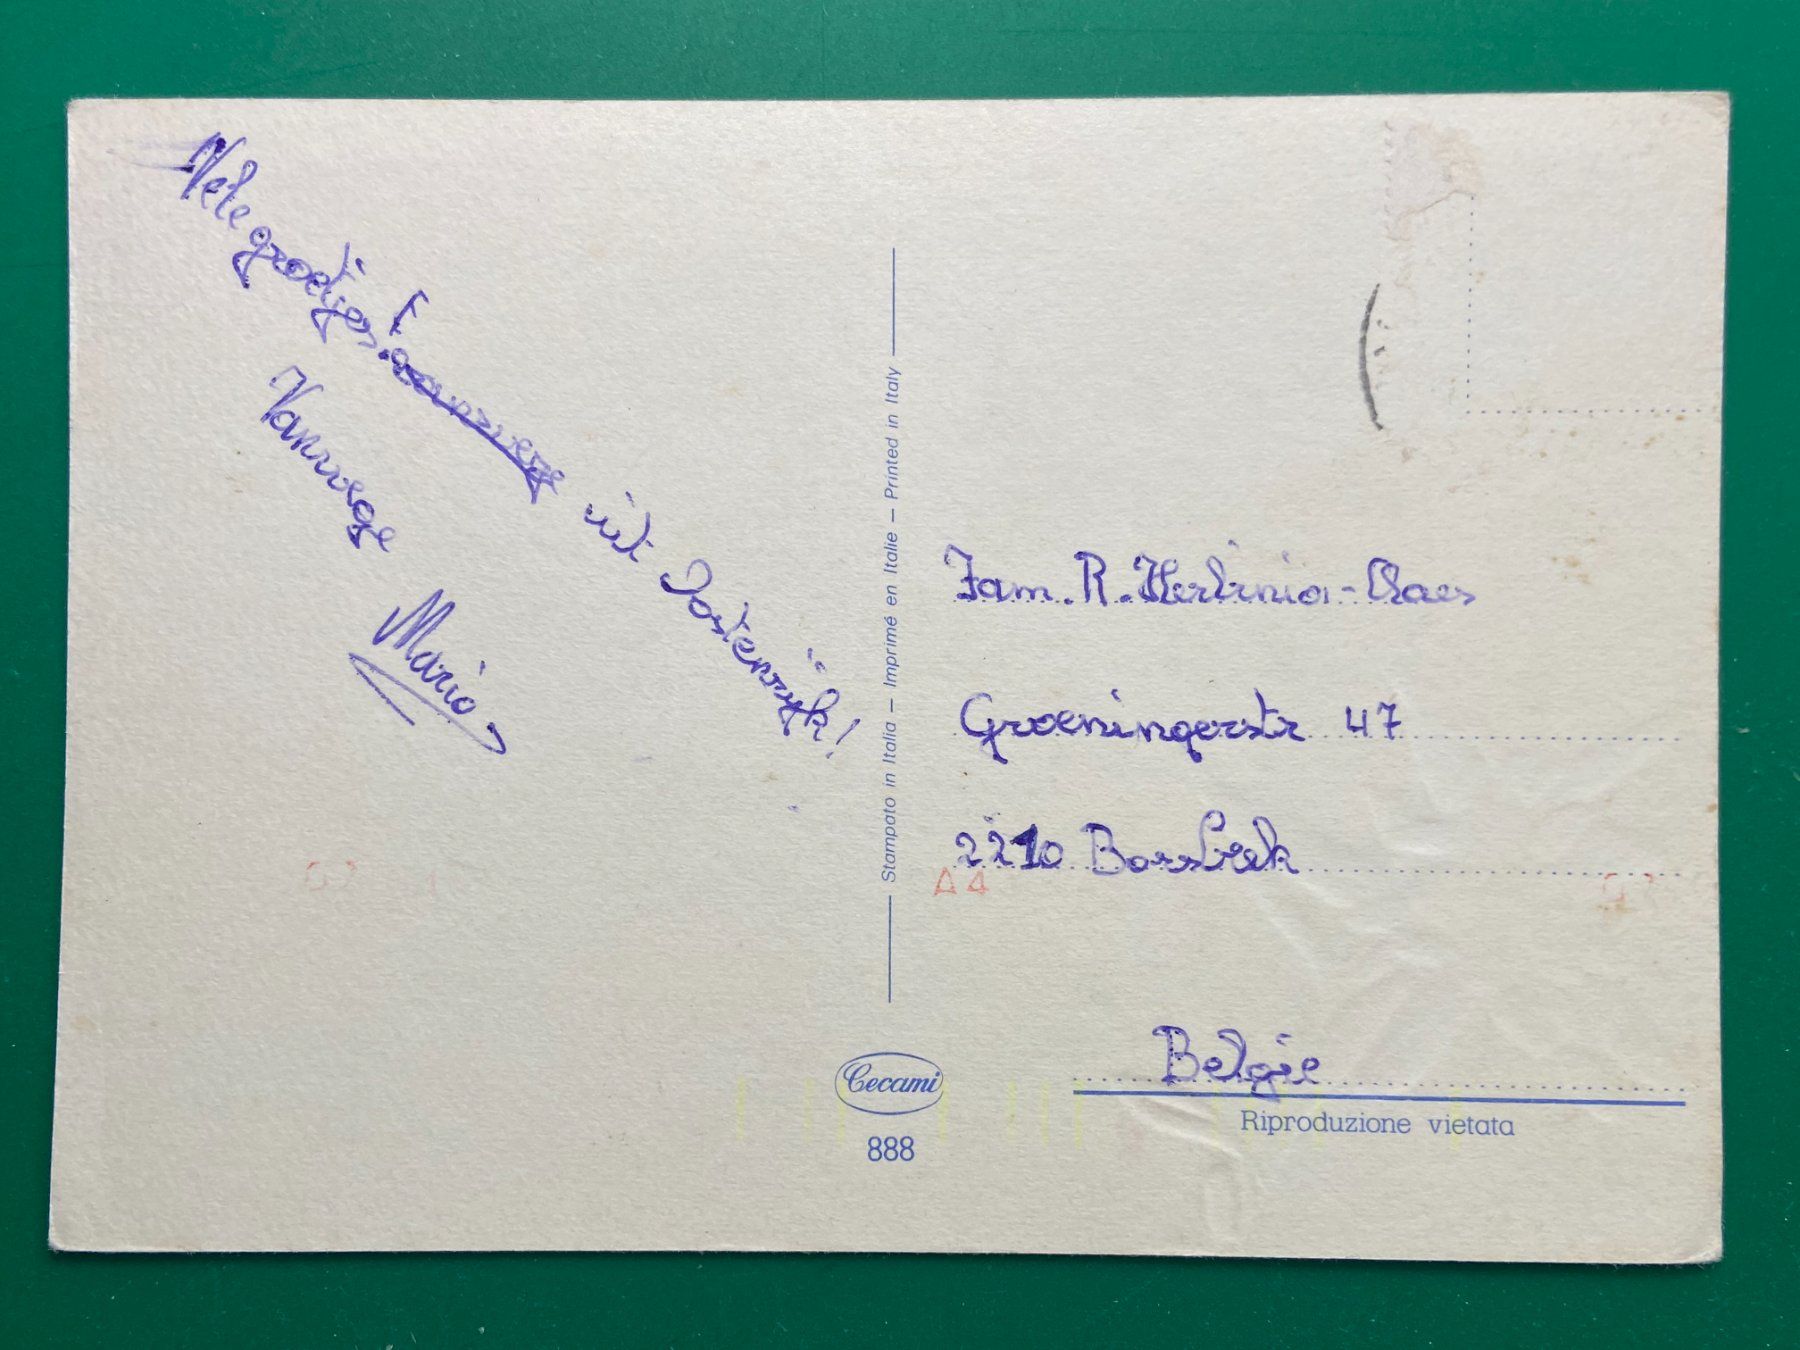 Vele groetjes! uit Oostenrijk!
Vanwege
Mario
Stampato in Italia – Imprimé en Italie – Printed in Italy
Fam. R. - Claes
Groeningerstr 47
2210 Borsbeek
A 4
België
Cecami
888
Riproduzione vietata